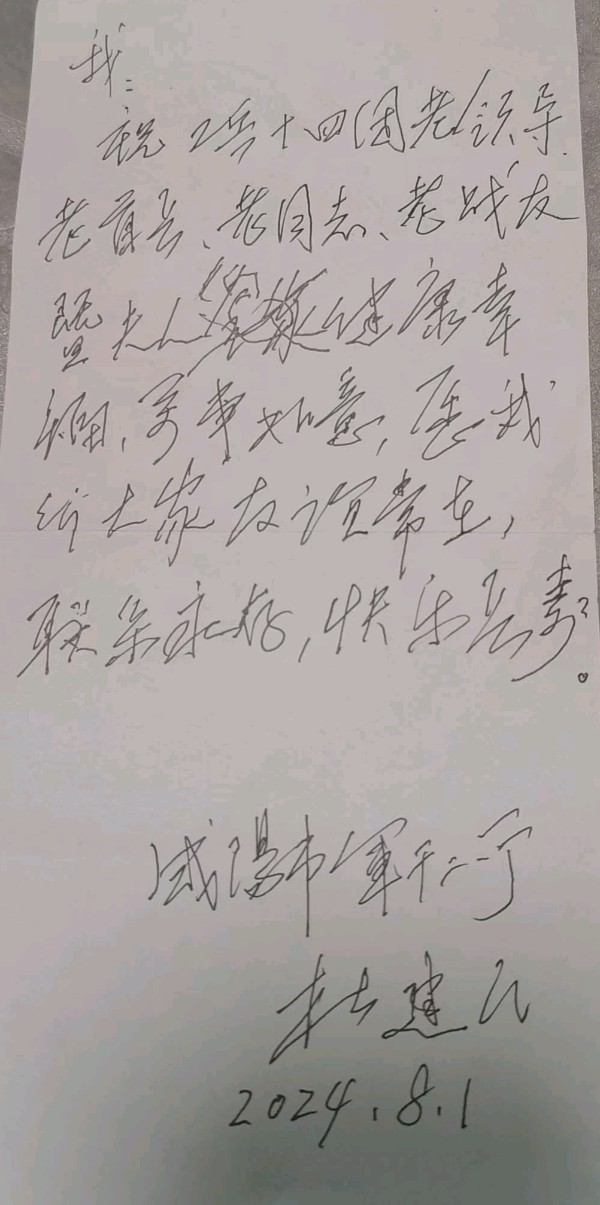 我:
祝工兵十四团老领导
老首长、老同志、老战友
暨夫人健康幸
福,万事如意,愿我
们大家友谊常在,
联系永存,快乐长寿。
咸阳市军干二所
杜建民
2024.8.1